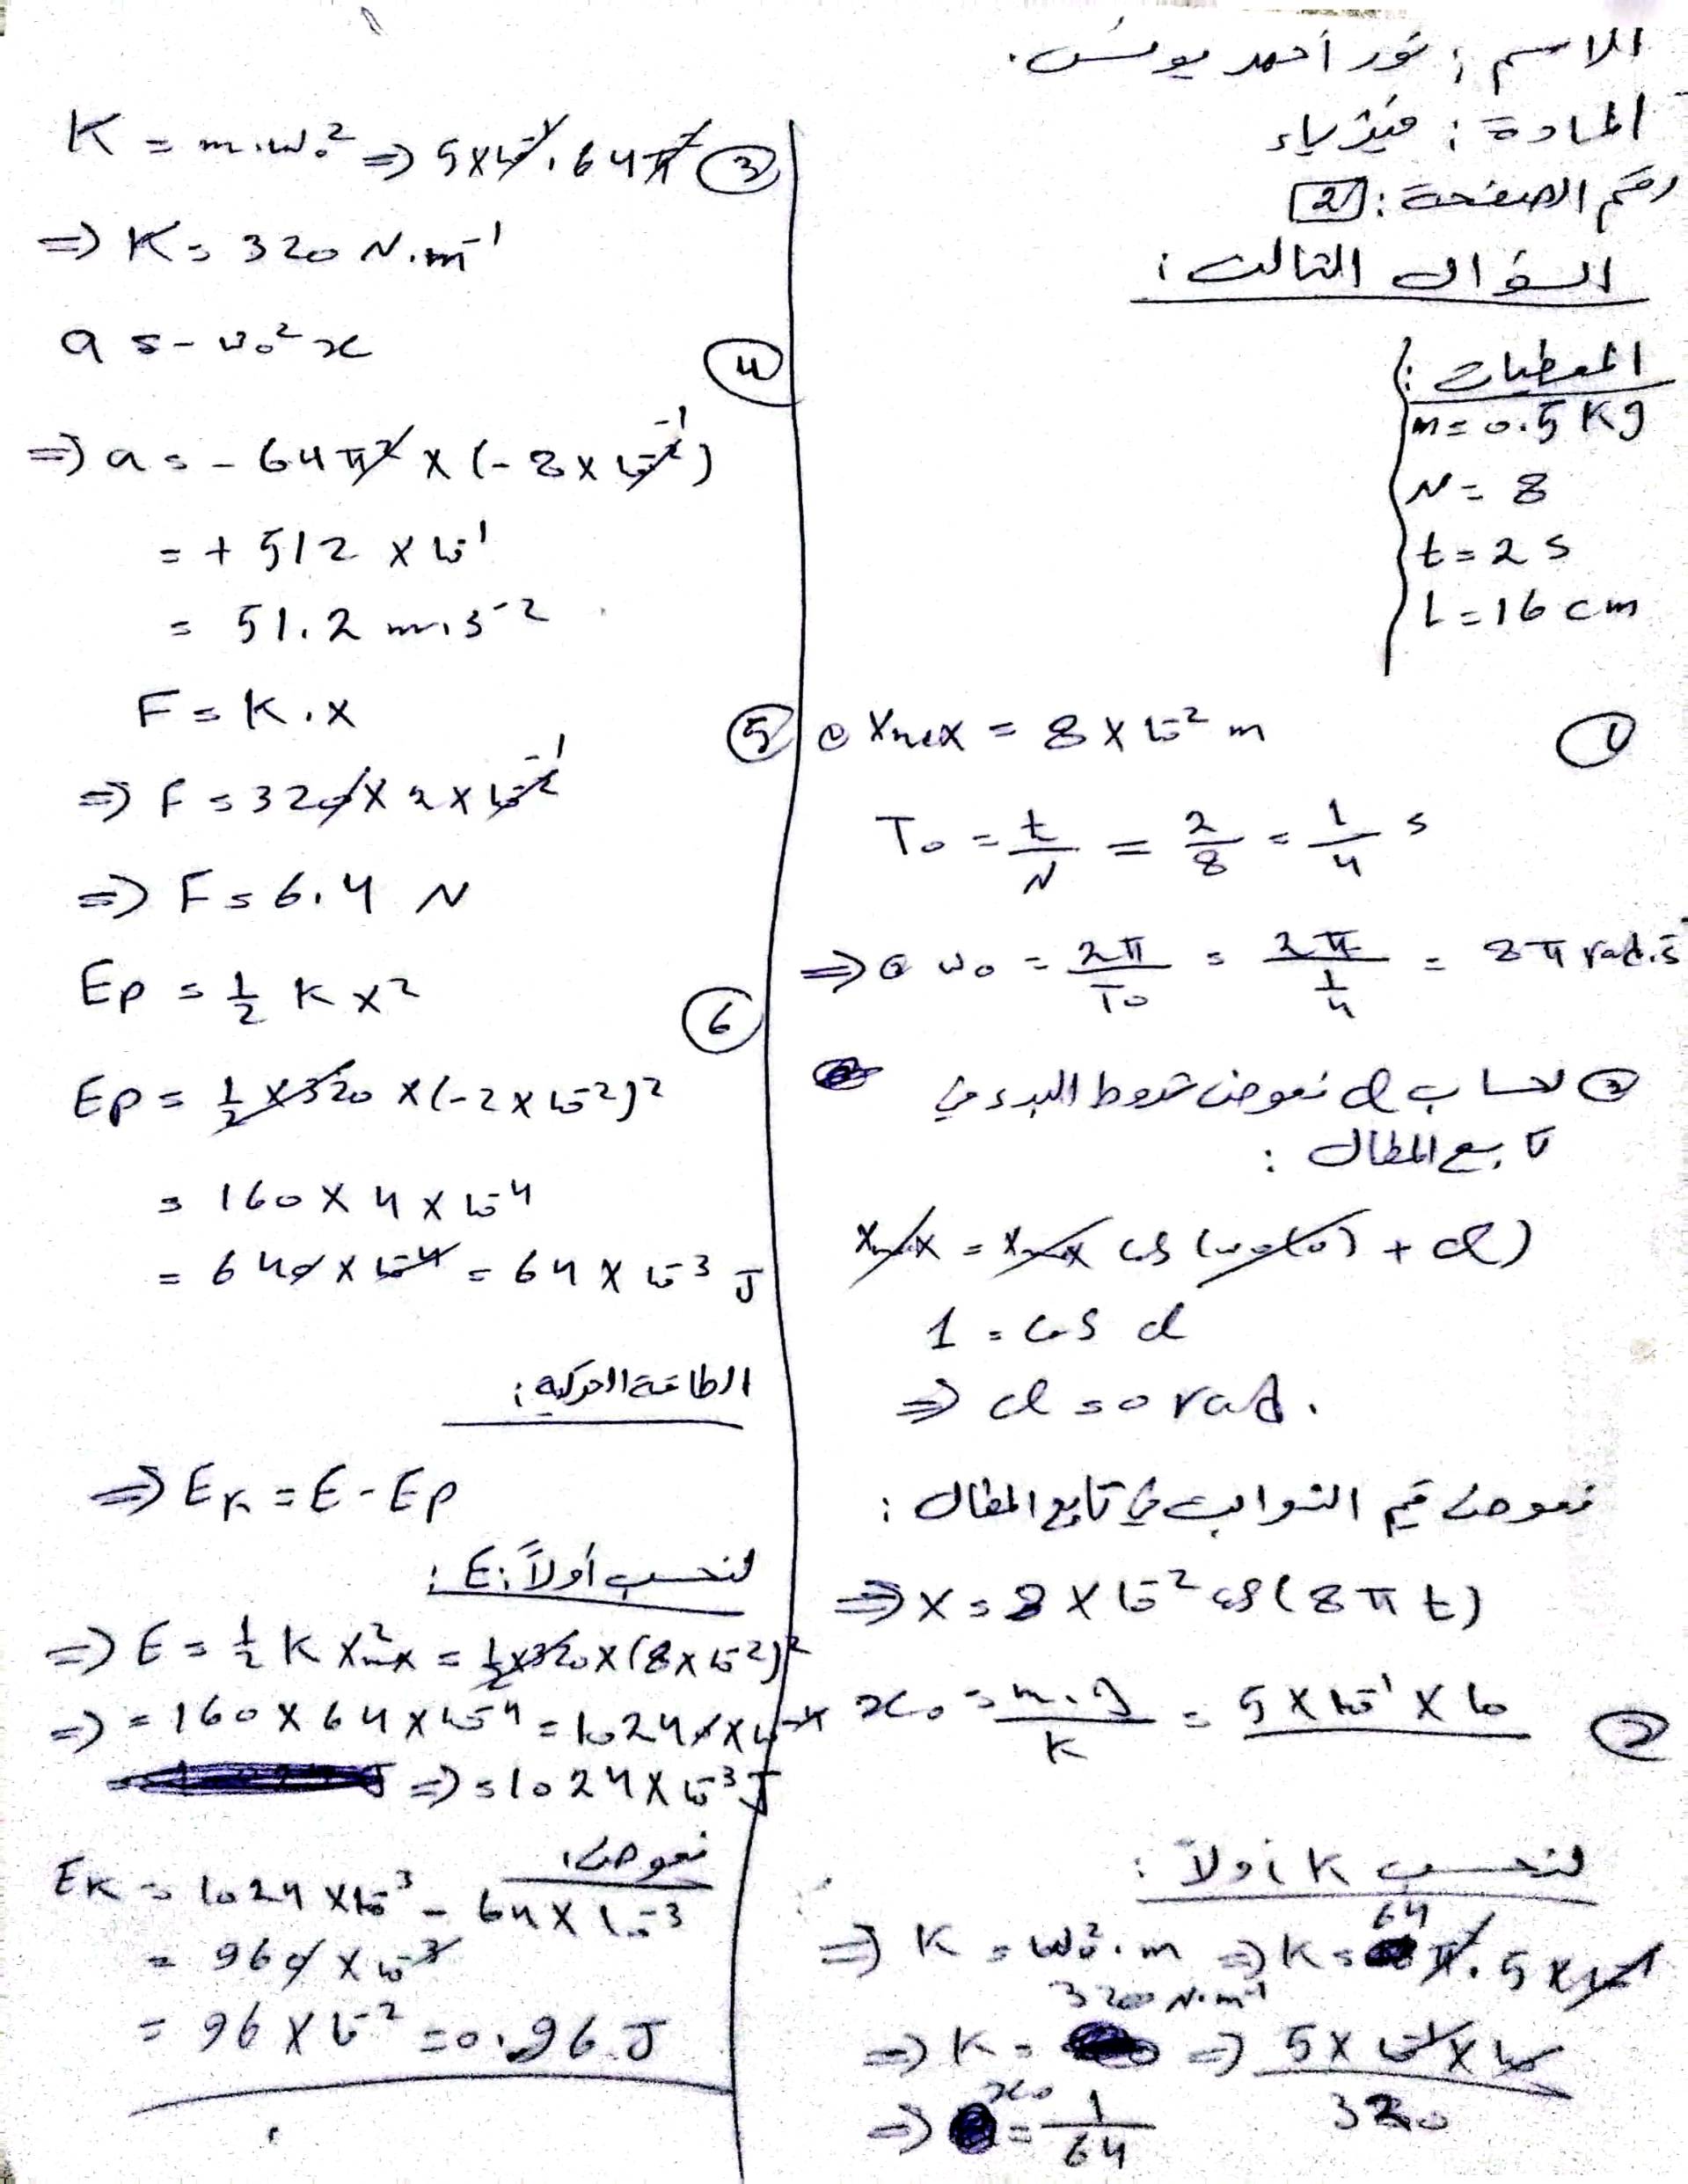 الاسم : نور أحمد يونس.
المادة : فيزياء
رقم الصفحة : [2]
السؤال الثالث :
المعطيات :
m = 0.5 Kg
N = 8
t = 2 s
L = 16 cm
①
• Xmax = 8 × 10⁻² m
T₀ = t/N = 2/8 = 1/4 s
⇒ • ω₀ = 2π/T₀ = 2π/(1/4) = 8π rad.s⁻
• لحساب φ نعوض شروط البدء في
تابع المطال :
Xmax = Xmax cos (ω₀(0) + φ)
1 = cos φ
⇒ φ = 0 rad.
نعوض قيم الثوابت في تابع المطال :
⇒ X = 8 × 10⁻² cos(8πt)
② x₀ = m.g/K = 5 × 10⁻¹ × 10
لنحسب K أولاً :
⇒ K = ω₀².m ⇒ K = 64 π². 5 × 10⁻¹
⇒ K = 320 N.m⁻¹ ⇒ 5 × 10⁻¹ × 10 / 320
⇒ x₀ = 1/64
③ K = m.ω₀² ⇒ 5×10⁻¹. 64π²
⇒ K = 320 N.m⁻¹
④ a = -ω₀² x
⇒ a = -64π² × (-8 × 10⁻²) ⁻¹
= + 512 × 10⁻¹
= 51.2 m.s⁻²
⑤ F = K.X
⇒ F = 320 × 2 × 10⁻² ⁻¹
⇒ F = 6.4 N
⑥ Ep = 1/2 K X²
Ep = 1/2 × 320 × (-2 × 10⁻²)²
= 160 × 4 × 10⁻⁴
= 640 × 10⁻⁴ = 64 × 10⁻³ J
الطاقة الحركية :
⇒ EK = E - Ep
لنحسب أولاً E :
⇒ E = 1/2 K X²max = 1/2 × 320 × (8 × 10⁻²)²
⇒ = 160 × 64 × 10⁻⁴ = 10240 × 10⁻⁴
⇒ = 1024 × 10⁻³ J
نعوض:
EK = 1024 × 10⁻³ - 64 × 10⁻³
= 960 × 10⁻³
= 96 × 10⁻² = 0.96 J